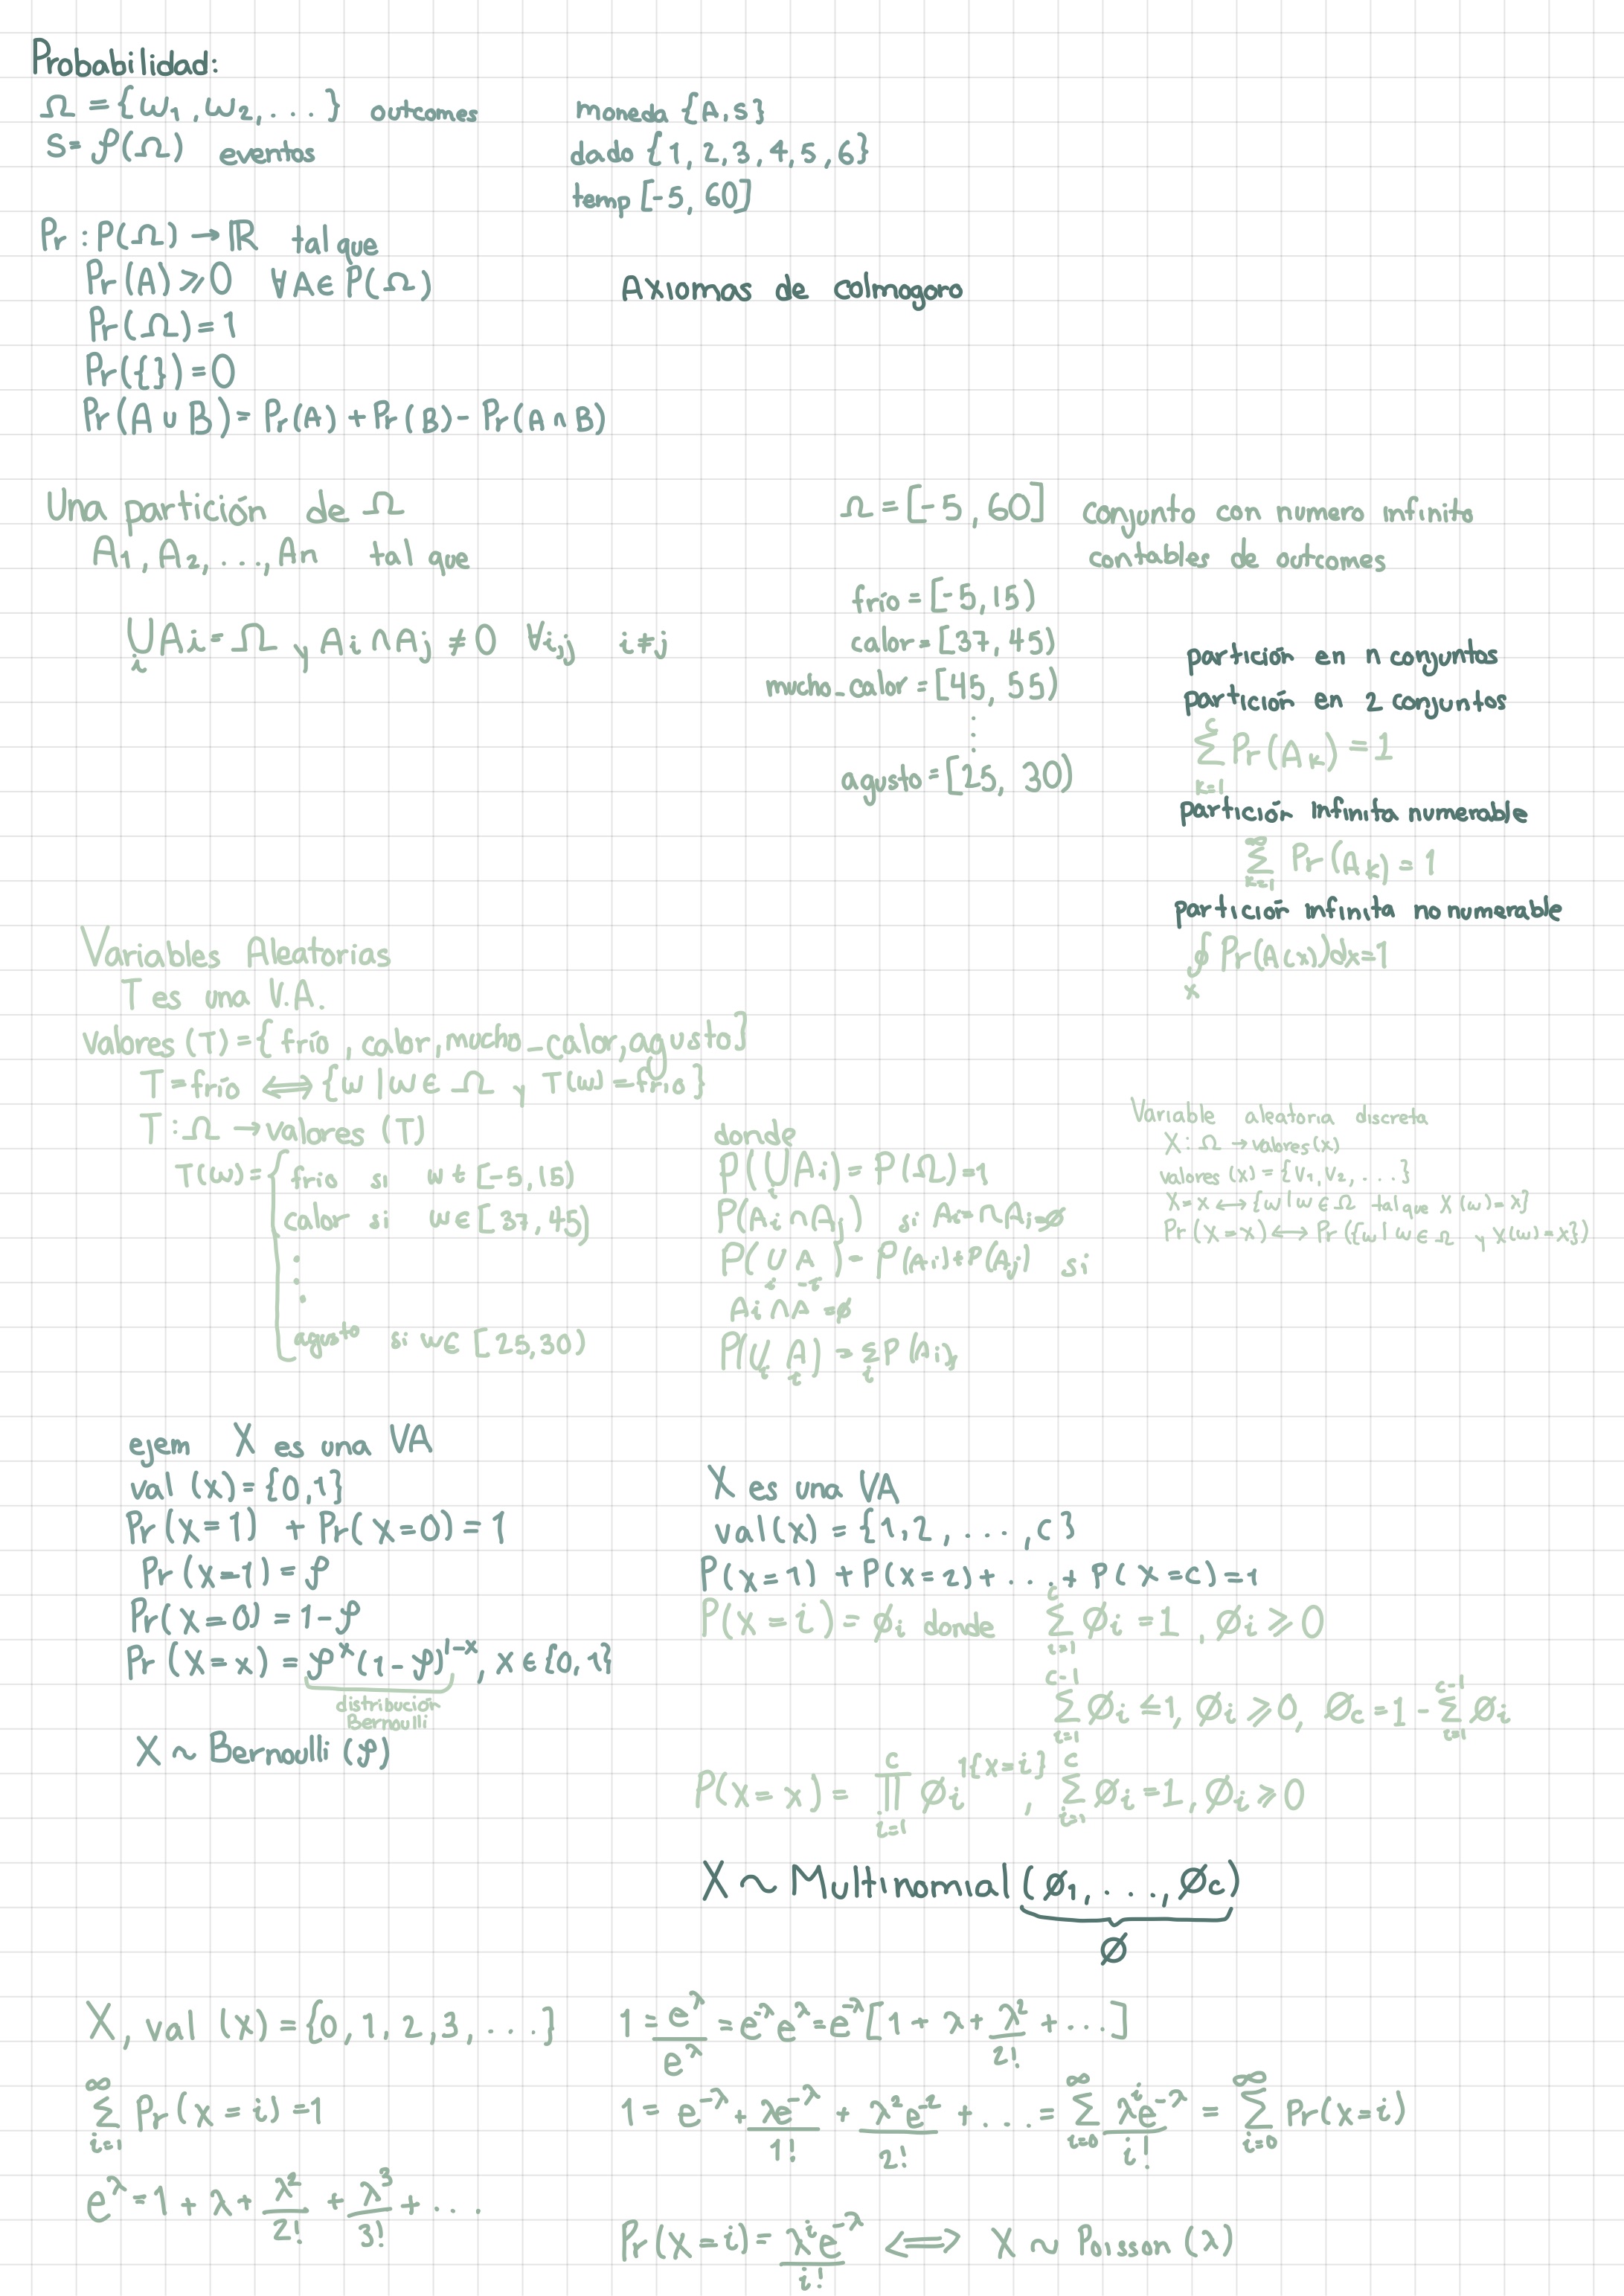 Probabilidad:
Ω = {ω₁, ω₂, ...} outcomes
S = 𝒫(Ω) eventos
moneda {A, S}
dado {1, 2, 3, 4, 5, 6}
temp [-5, 60]
Pr : P(Ω) → ℝ tal que
Pr(A) ⩾ 0 ∀A ∈ P(Ω)
Pr(Ω) = 1
Pr({}) = 0
Pr(A ∪ B) = Pr(A) + Pr(B) - Pr(A ∩ B)
Axiomas de colmogoro
Una partición de Ω
A₁, A₂, ..., An tal que
⋃_i Ai = Ω y Ai ∩ Aj ≠ 0 ∀i,j i ≠ j
Ω = [-5, 60] conjunto con numero infinito
contables de outcomes
frío = [-5, 15)
calor = [37, 45)
mucho_calor = [45, 55)
⋮
agusto = [25, 30)
partición en n conjuntos
partición en 2 conjuntos
∑_{k=1}^{c} Pr(A_k) = 1
partición infinita numerable
∑_{k=1}^{∞} Pr(A_k) = 1
partición infinita no numerable
∮_x Pr(A(x))dx = 1
Variables Aleatorias
T es una V.A.
valores (T) = {frío, calor, mucho_calor, agusto}
T = frío ⟺ {ω | ω ∈ Ω y T(ω) = frio}
T : Ω → valores (T)
T(ω) = { frio si w ∈ [-5, 15)
calor si w ∈ [37, 45)
⋮
agusto si w ∈ [25, 30)
donde
P(⋃_i Ai) = P(Ω) = 1
P(Ai ∩ Aj) si Ai = ∩ Aj = ø
P(∪ A) = P(Ai) + P(Aj) si
Ai ∩ A = ø
P(⋃_i A_i) = ∑_i P(Ai)
Variable aleatoria discreta
X : Ω → valores(x)
valores (x) = {V₁, V₂, ...}
X = x ⟷ {ω | ω ∈ Ω tal que X(ω) = x}
Pr(X = x) ⟷ Pr({ω | ω ∈ Ω y X(ω) = x})
ejem X es una VA
val (x) = {0, 1}
Pr(X=1) + Pr(X=0) = 1
Pr(x=1) = 𝒫
Pr(X=0) = 1 - 𝒫
Pr(X=x) = 𝒫^x (1-𝒫)^{1-x}, x ∈ {0, 1}
distribución
Bernoulli
X ~ Bernoulli (𝒫)
X es una VA
val(x) = {1, 2, ..., c}
P(x=1) + P(x=2) + ... + P(X=c) = 1
P(x=i) = ø_i donde ∑_{i=1}^{c} ø_i = 1, ø_i ⩾ 0
∑_{i=1}^{c-1} ø_i ≤ 1, ø_i ⩾ 0, ø_c = 1 - ∑_{i=1}^{c-1} ø_i
P(X=x) = ∏_{i=1}^{c} ø_i^{1{x=i}}, ∑_{i=1}^{c} ø_i = 1, ø_i ⩾ 0
X ~ Multinomial (ø₁, ..., ø_c)
ø
X, val (x) = {0, 1, 2, 3, ...}
∑_{i=1}^{∞} Pr(x=i) = 1
e^λ = 1 + λ + λ²/2! + λ³/3! + ...
1 = e^λ/e^λ = e^{-λ} e^λ = e^{-λ} [1 + λ + λ²/2! + ...]
1 = e^{-λ} + λe^{-λ}/1! + λ²e^{-2}/2! + ... = ∑_{i=0}^{∞} λ^i e^{-λ}/i! = ∑_{i=0}^{∞} Pr(x=i)
Pr(X=i) = λ^i e^{-λ}/i! ⟺ X ~ Poisson (λ)